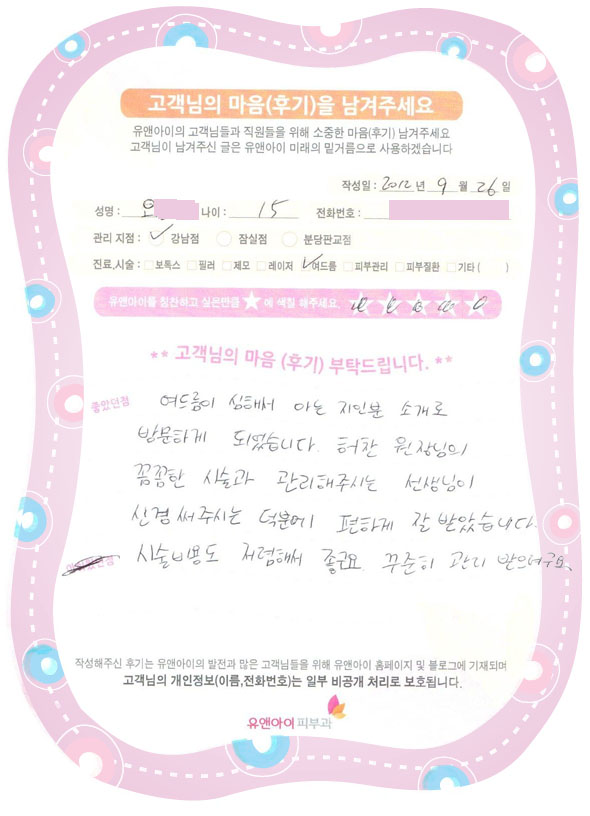 고객님의 마음(후기)을 남겨주세요
유앤아이의 고객님들과 직원들을 위해 소중한 마음(후기) 남겨주세요
고객님이 남겨주신 글은 유앤아이 미래의 밑거름으로 사용하겠습니다
작성일 : 2012 년 9 월 26 일
성명 : 나이 : 15 전화번호 :
관리 지점 : 강남점 잠실점 분당판교점
진료,시술 : 보톡스 필러 제모 레이저 여드름 피부관리 피부질환 기타 ( )
유앤아이를 칭찬하고 싶은만큼 ★ 에 색칠 해주세요
** 고객님의 마음 (후기) 부탁드립니다. **
좋았던점 여드름이 심해서 아는 지인분 소개로
방문하게 되었습니다. 허찬 원장님의
꼼꼼한 시술과 관리해주시는 선생님이
신경써주시는 덕분에 편하게 잘 받았습니다.
시술비용도 저렴해서 좋구요 꾸준히 관리 받으려구요.
작성해주신 후기는 유앤아이의 발전과 많은 고객님들을 위해 유앤아이 홈페이지 및 블로그에 기재되며
고객님의 개인정보(이름,전화번호)는 일부 비공개 처리로 보호됩니다.
유앤아이 피부과